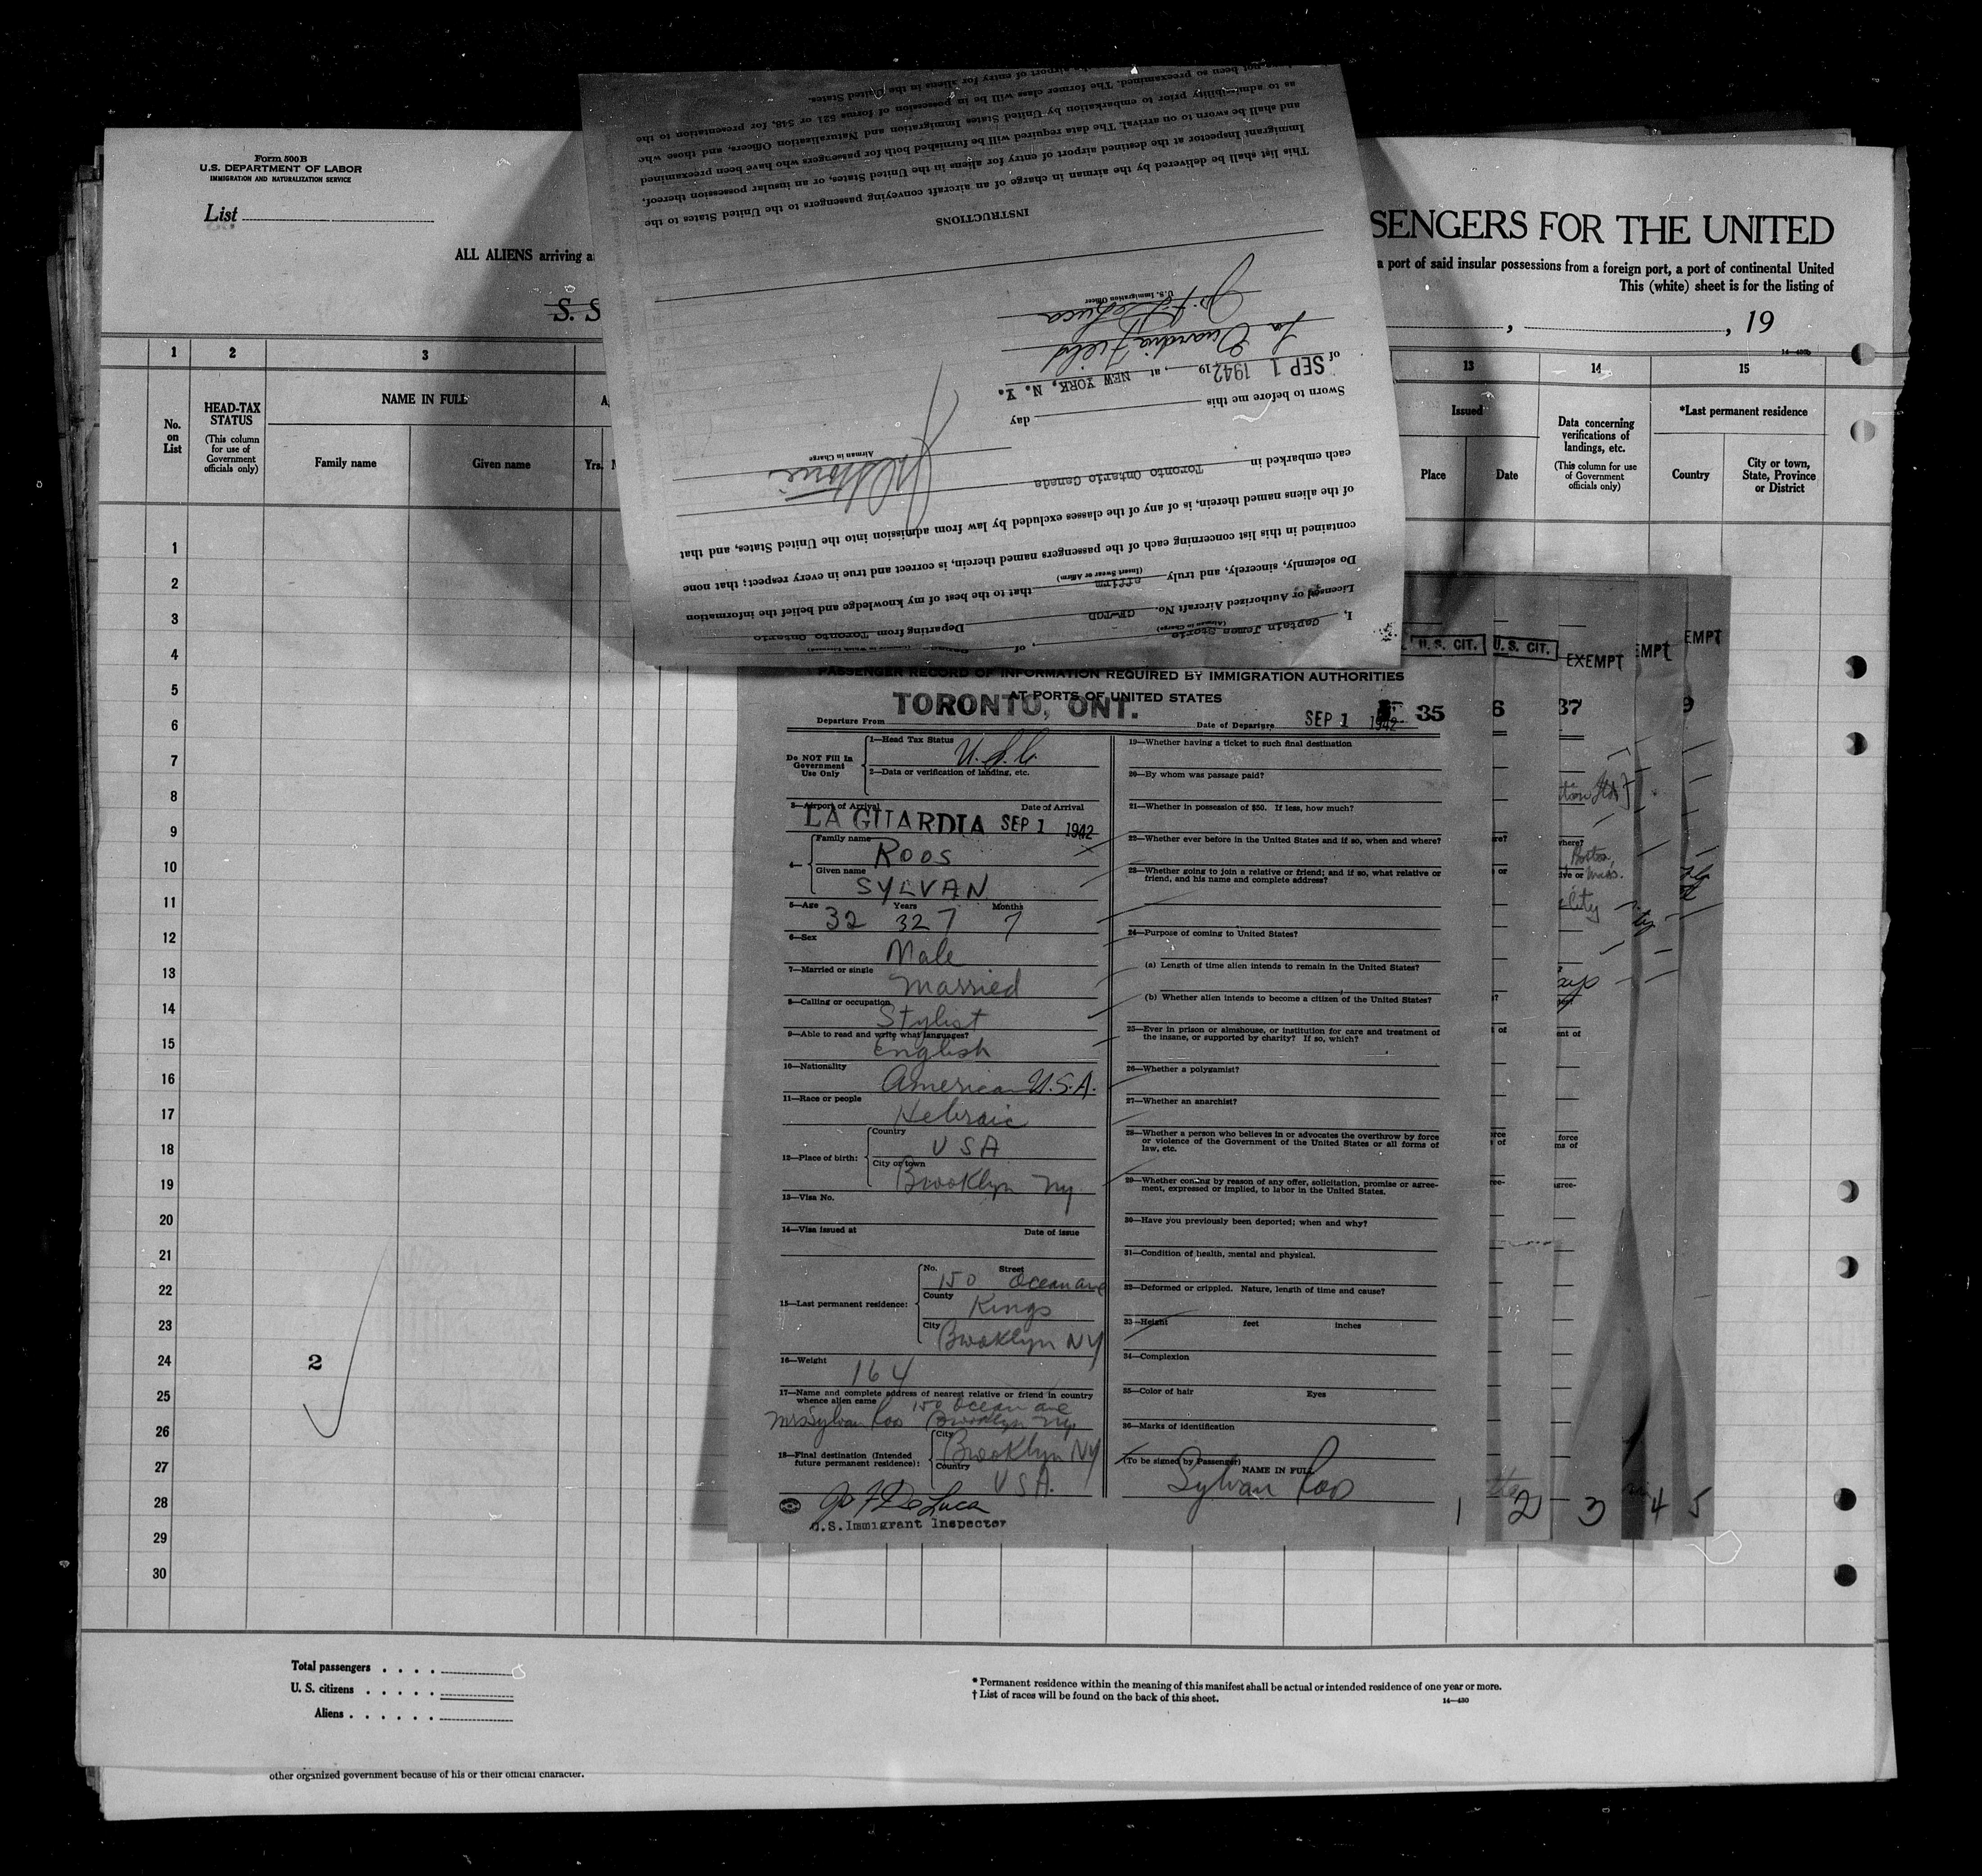 Form 500B
U.S. DEPARTMENT OF LABOR
IMMIGRATION AND NATURALIZATION SERVICE
List
ALL ALIENS arriving a
S. S
SENGERS FOR THE UNITED
a port of said insular possessions from a foreign port, a port of continental United
This (white) sheet is for the listing of
, , 19
14—430b
1 2 3 13 14 15
No. on List
HEAD-TAX STATUS
(This column for use of Government officials only)
NAME IN FULL
Family name Given name
Yrs.
Issued
Place Date
Data concerning verifications of landings, etc.
(This column for use of Government officials only)
*Last permanent residence
Country
City or town, State, Province or District
1
2
3
4
5
6
7
8
9
10
11
12
13
14
15
16
17
18
19
20
21
22
23
24
25
26
27
28
29
30
2
I, Captain James Storie, of
(Airman in Charge)
Licensed or Authorized Aircraft No. CF-TCD Departing from Toronto Ontario
Do solemnly, sincerely, and truly affirm that to the best of my knowledge and belief the information
(Insert Swear or Affirm)
contained in this list concerning each of the passengers named therein, is correct and true in every respect; that none
of the aliens named therein, is of any of the classes excluded by law from admission into the United States, and that
each embarked in Toronto Ontario Canada
Airman in Charge
Sworn to before me this day
of SEP 1 1942 19 , at NEW YORK, N. Y.
La Guardia Field
U.S. Immigration Officer
INSTRUCTIONS
This list shall be delivered by the airman in charge of an aircraft conveying passengers to the United States to the
Immigrant Inspector at the destined airport of entry for aliens in the United States, or an insular possession thereof,
and shall be sworn to on arrival. The data required will be furnished both for passengers who have been preexamined
as to admissibility prior to embarkation by United States Immigration and Naturalization Officers, and those who
have not been so preexamined. The former class will be in possession of forms 521 or 548, for presentation to the
airport of entry for aliens in the United States.
U. S. CIT. U. S. CIT. EXEMPT EMPT EMPT
PASSENGER RECORD OF INFORMATION REQUIRED BY IMMIGRATION AUTHORITIES
AT PORTS OF UNITED STATES
Departure From TORONTO, ONT. Date of Departure SEP 1 1942 35 6 37 9
Do NOT Fill In Government Use Only
1—Head Tax Status U.S.C.
2—Data or verification of landing, etc.
3—Airport of Arrival Date of Arrival
LA GUARDIA SEP 1 1942
4— Family name ROOS
Given name SYLVAN
5—Age Years Months
32 32 7 7
6—Sex Male
7—Married or single Married
8—Calling or occupation Stylist
9—Able to read and write what languages? English
10—Nationality American U.S.A.
11—Race or people Hebraic
12—Place of birth: Country USA
City or town Brooklyn Ny
13—Visa No.
14—Visa issued at Date of issue
15—Last permanent residence: No. Street 150 Ocean ave
County Kings
City Brooklyn NY
16—Weight 164
17—Name and complete address of nearest relative or friend in country
whence alien came 150 Ocean ave
Mrs Sylvan Roos Brooklyn Ny
18—Final destination (Intended future permanent residence): City Brooklyn NY
Country USA.
U.S. Immigrant Inspector
19—Whether having a ticket to such final destination
20—By whom was passage paid?
21—Whether in possession of $50. If less, how much?
22—Whether ever before in the United States and if so, when and where?
23—Whether going to join a relative or friend; and if so, what relative or
friend, and his name and complete address?
24—Purpose of coming to United States?
(a) Length of time alien intends to remain in the United States?
(b) Whether alien intends to become a citizen of the United States?
25—Ever in prison or almshouse, or institution for care and treatment of
the insane, or supported by charity? If so, which?
26—Whether a polygamist?
27—Whether an anarchist?
28—Whether a person who believes in or advocates the overthrow by force
or violence of the Government of the United States or all forms of
law, etc.
29—Whether coming by reason of any offer, solicitation, promise or agree-
ment, expressed or implied, to labor in the United States.
30—Have you previously been deported; when and why?
31—Condition of health, mental and physical.
32—Deformed or crippled. Nature, length of time and cause?
33—Height feet inches
34—Complexion
35—Color of hair Eyes
36—Marks of identification
(To be signed by Passenger) NAME IN FULL
Sylvan Roos
1 2 3 4 5
Total passengers
U. S. citizens
Aliens
* Permanent residence within the meaning of this manifest shall be actual or intended residence of one year or more.
† List of races will be found on the back of this sheet.
14—430
other organized government because of his or their official character.